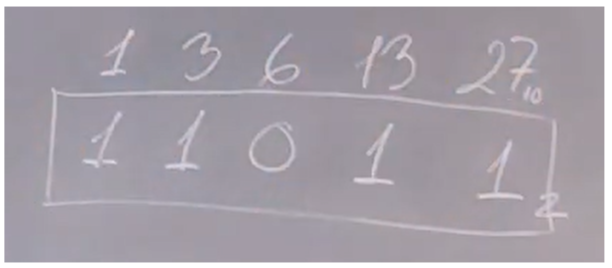 1 3 6 13 27₁₀
1 1 0 1 1₂